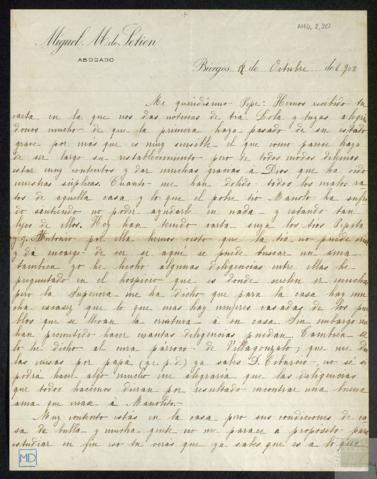 Miguel M. de Setien
ABOGADO
Búrgos de Octubre de 1902
Me queridisimo Pepe: Hemos recibido tu
carta en la que nos das noticias de tia Lola y tuyas alegran
donos mucho de que la primera haya pasado de su estado
grave por mas que es muy sensible el que como parece haya
de ser largo su restablecimiento pero de todos modos debemos
estar muy contentos y dar muchas gracias á Dios que ha oido
nuestras súplicas. Cuanto me han dolido todos los malos ra
tos de aquella casa y lo que el pobre tio Manolo ha sufri
do sintiendo no poder ayudarle en nada y estando tan
lejos de ellos. Hoy han tenido carta suya los tios Pepita
y Antonio por ella hemos visto que la tia no puede criar
y da encargo de ver si aquí se puede buscar un ama
tambien yo he hecho algunas diligencias entre ellas he
preguntado en el hospicio que es donde suelen ir muchas
pero la Superiora me ha dicho que para la casa hay mu
cha escasez que lo que mas hay mujeres casadas de los pue
blos que se llevan la criatura á su casa. Sin embargo me
han prometido hacer cuantas diligencias puedan. Tambien se
lo he dicho al cura párroco de Villagonzalo, que nos da
las misas por papá (q. e. p. d.) ya sabes D. si
podrá hacer algo mucho me alegraria que las diligencias
que todos hacemos dieran por resultado encontrar una buena
ama que criase á Manolito.
Muy contento estás en la casa pero sus condiciones de ca
sa de bulla y mucha gente no me parece á propósito para
estudiar en fin eso tu verás que ya sabes que es á lo que
MD